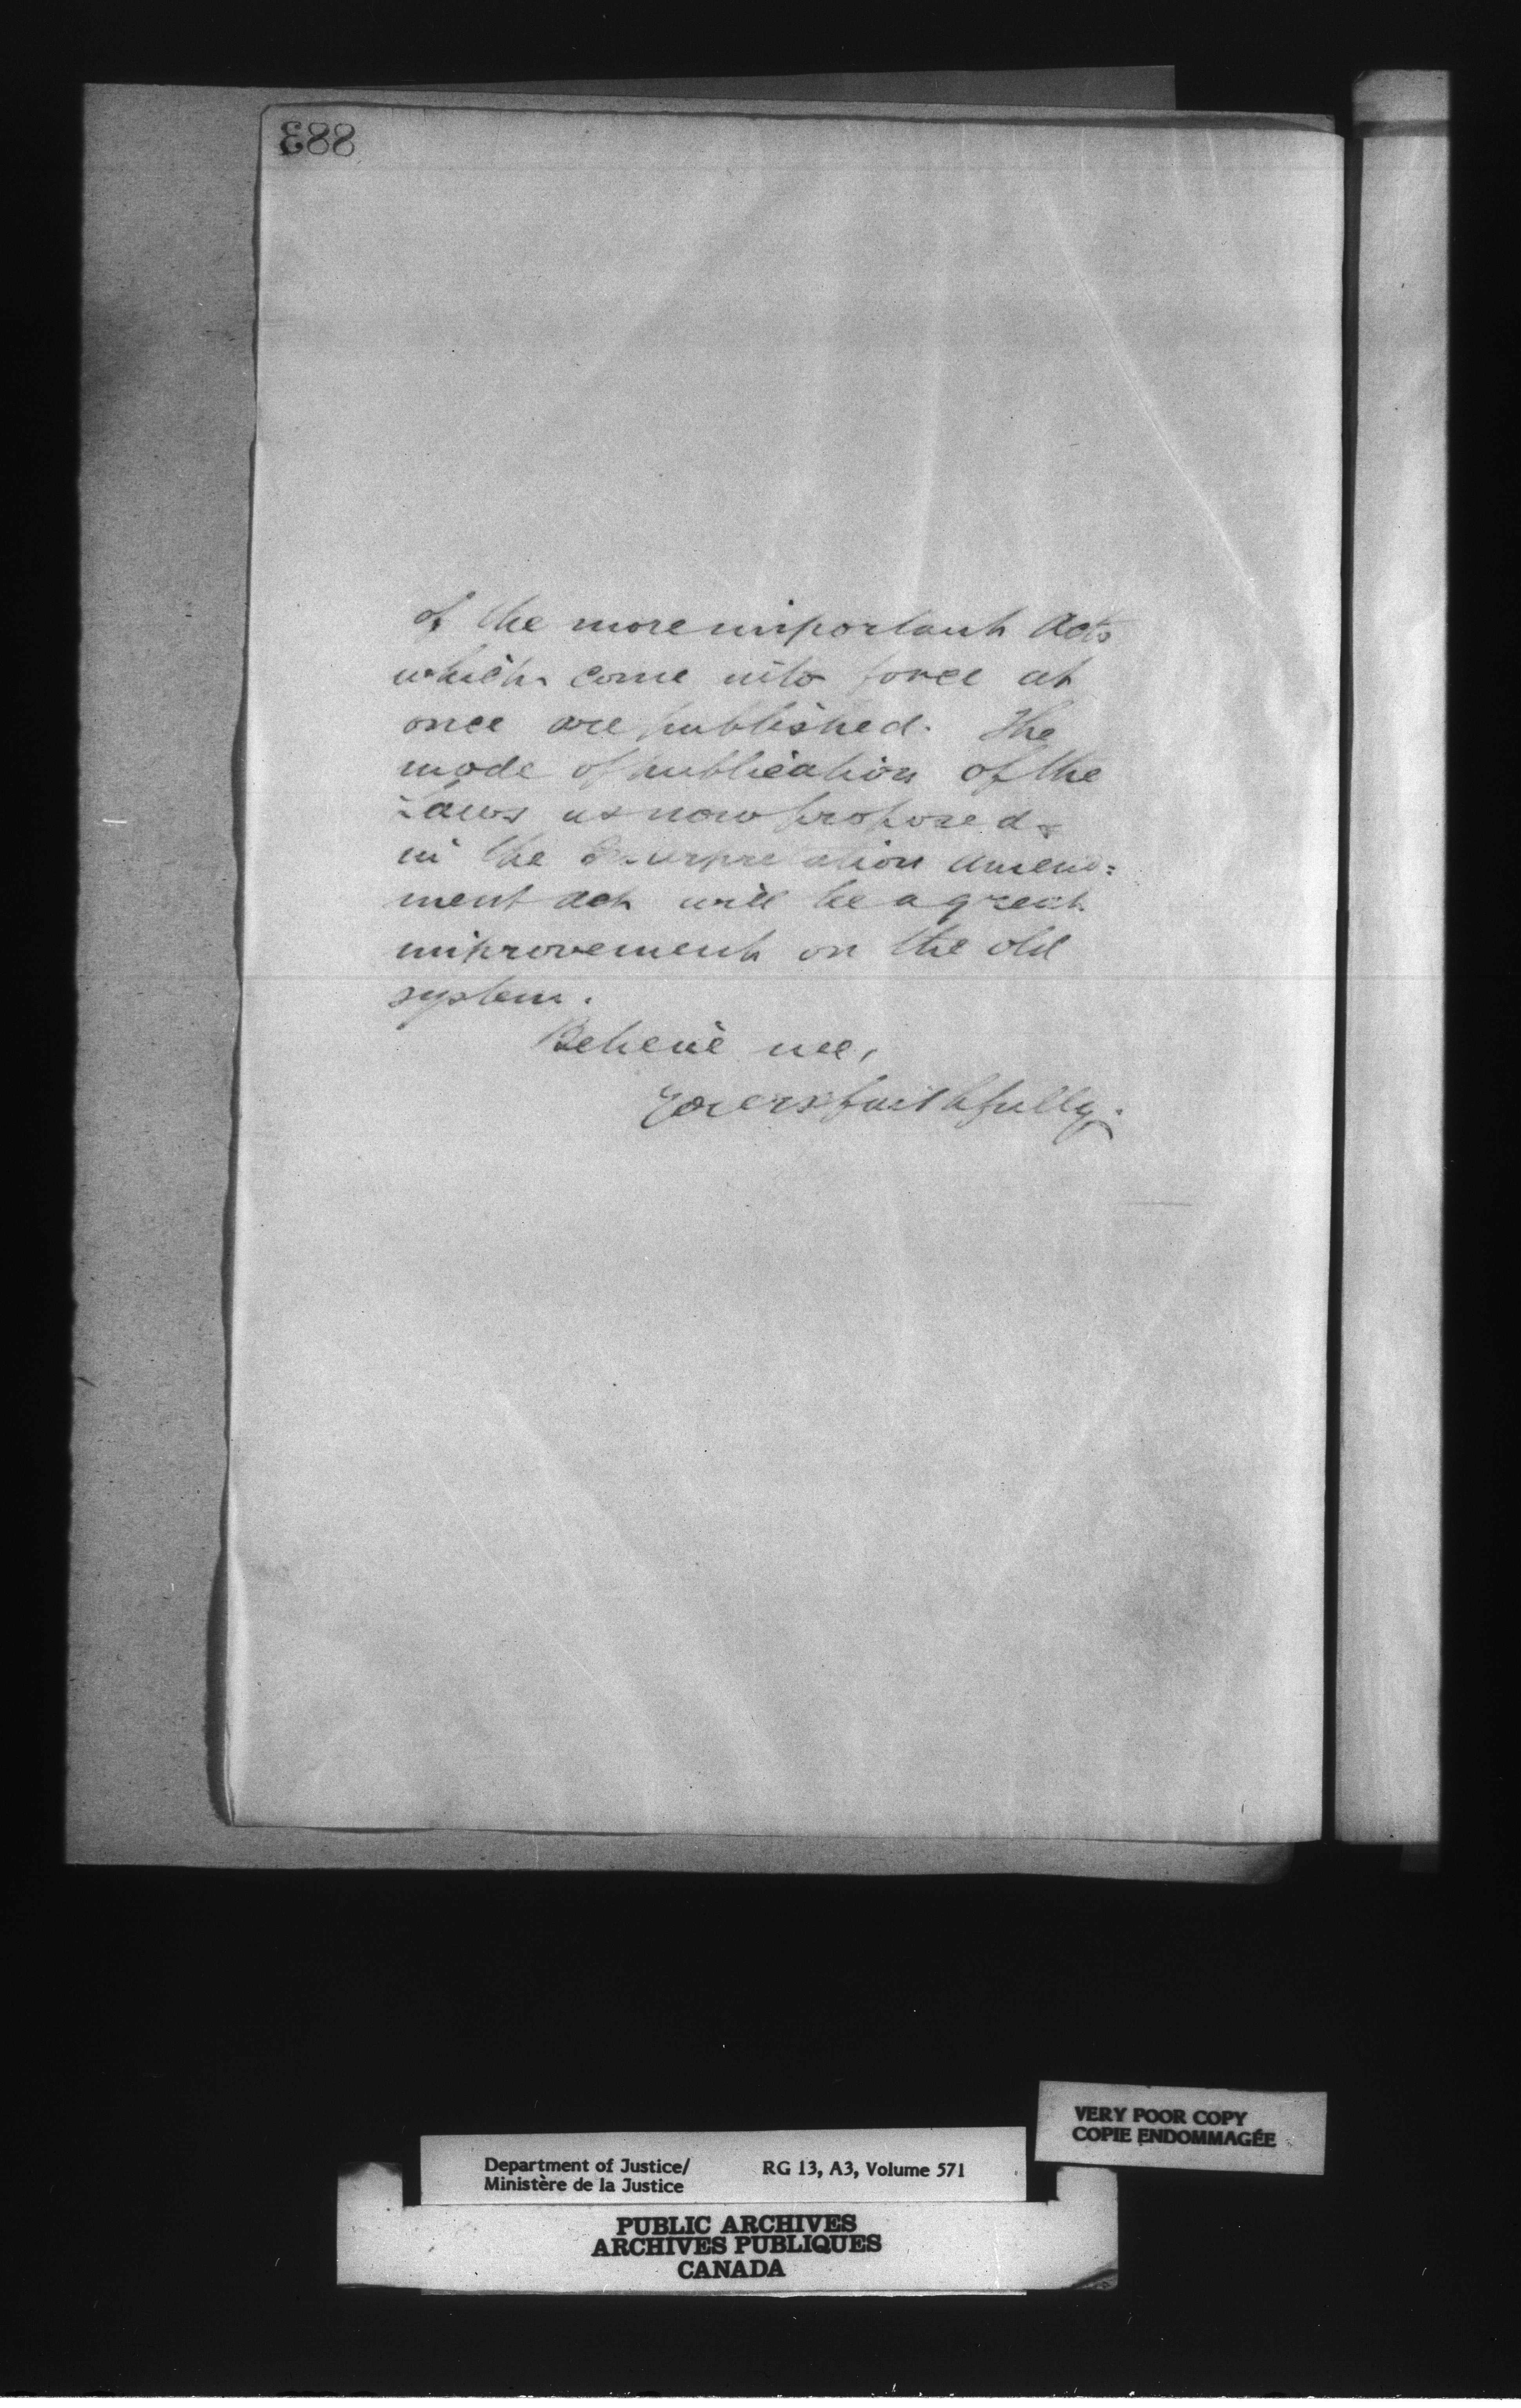 883
of the more important Acts
which come into force at
once are published. The
mode of publication of the
Laws as now proposed
in the Interpretation Amend=
ment Act will be a great
improvement on the old
system.
Believe me,
Yours faithfully.
VERY POOR COPY
COPIE ENDOMMAGÉE
Department of Justice/ RG 13, A3, Volume 571
Ministère de la Justice
PUBLIC ARCHIVES
ARCHIVES PUBLIQUES
CANADA